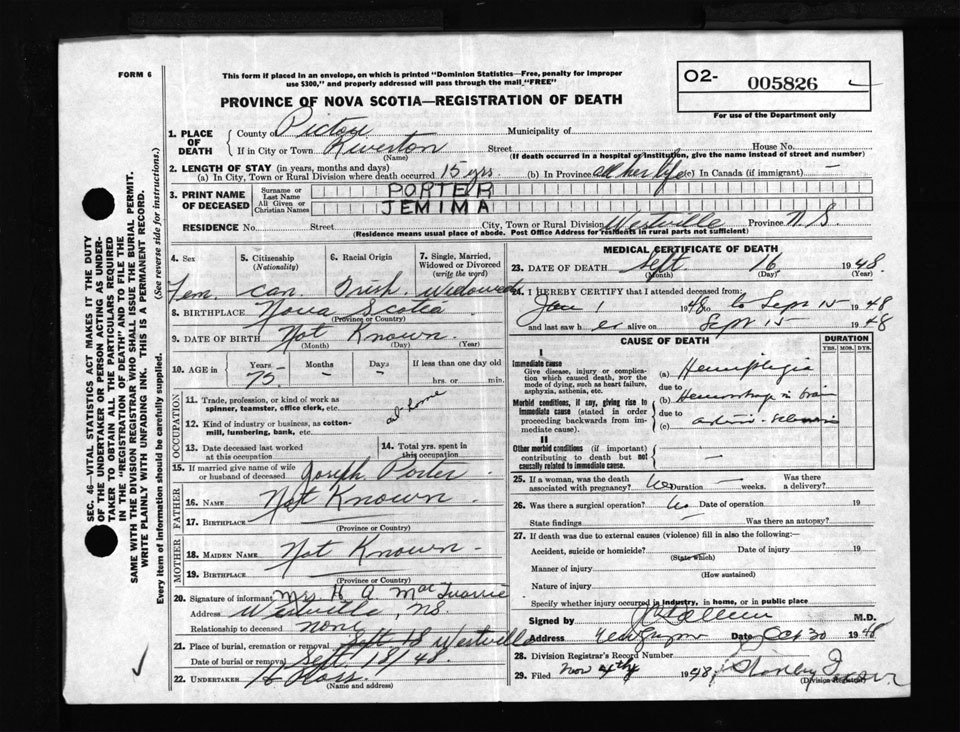 FORM 6
This form if placed in an envelope, on which is printed "Dominion Statistics—Free, penalty for improper
use $300," and properly addressed will pass through the mail "FREE"
PROVINCE OF NOVA SCOTIA—REGISTRATION OF DEATH
O2- 005826
For use of the Department only
1. PLACE OF DEATH
County of Pictou Municipality of
If in City or Town Riverton Street House No.
(Name) (If death occurred in a hospital or institution, give the name instead of street and number)
2. LENGTH OF STAY (in years, months and days)
(a) In City, Town or Rural Division where death occurred 15 yrs. (b) In Province all her life (c) In Canada (if immigrant) —
3. PRINT NAME OF DECEASED
Surname or Last Name PORTER
All Given or Christian Names JEMIMA
RESIDENCE No. Street City, Town or Rural Division Westville Province N.S.
(Residence means usual place of abode. Post Office Address for residents in rural parts not sufficient)
4. Sex
Fem.
5. Citizenship (Nationality)
Can.
6. Racial Origin
Irish.
7. Single, Married, Widowed or Divorced (write the word)
Widowed
8. BIRTHPLACE Nova Scotia
(Province or Country)
9. DATE OF BIRTH Not Known
(Month) (Day) (Year)
10. AGE in Years 75 Months — Days — If less than one day old
hrs. or min.
OCCUPATION
11. Trade, profession, or kind of work as
spinner, teamster, office clerk, etc.
at home
12. Kind of industry or business, as cotton-
mill, lumbering, bank, etc.
13. Date deceased last worked
at this occupation
14. Total yrs. spent in
this occupation
15. If married give name of wife
or husband of deceased Joseph Porter
FATHER
16. NAME Not Known
17. BIRTHPLACE
(Province or Country)
MOTHER
18. MAIDEN NAME Not Known
19. BIRTHPLACE
(Province or Country)
20. Signature of informant Mrs
Address Westville, N.S.
Relationship to deceased none
21. Place of burial, cremation or removal Sept. 18 Westville
Date of burial or removal Sept. 18/48.
22. UNDERTAKER
(Name and address)
MEDICAL CERTIFICATE OF DEATH
23. DATE OF DEATH Sept. 16 1948.
(Month) (Day) (Year)
24. I HEREBY CERTIFY that I attended deceased from:
Jan 1 1948 to Sept 15 1948
and last saw her alive on Sept 15 1948
CAUSE OF DEATH
DURATION
YRS. MOS. DYS.
I
Immediate cause
Give disease, injury or complica-
tion which caused death, NOT the
mode of dying, such as heart failure,
asphyxia, asthenia, etc.
(a) Hemiplegia
due to
Morbid conditions, if any, giving rise to
immediate cause (stated in order
proceeding backwards from im-
mediate cause).
(b) Hemorrhage in brain
due to
(c)
II
Other morbid conditions (if important)
contributing to death but not
causally related to immediate cause.
—
25. If a woman, was the death
associated with pregnancy? No Duration — weeks. Was there
a delivery?
26. Was there a surgical operation? No Date of operation 19
State findings Was there an autopsy?
27. If death was due to external causes (violence) fill in also the following:—
Accident, suicide or homicide? Date of injury 19
(State which)
Manner of injury
(How sustained)
Nature of injury
Specify whether injury occurred in industry, in home, or in public place
Signed by M.D.
Address Date Oct 30 1948
28. Division Registrar's Record Number
29. Filed Nov 1948
(Division Registrar)
SEC. 46—VITAL STATISTICS ACT MAKES IT THE DUTY
OF THE UNDERTAKER OR PERSON ACTING AS UNDER-
TAKER TO OBTAIN ALL THE PARTICULARS REQUIRED
IN THE "REGISTRATION OF DEATH" AND TO FILE THE
SAME WITH THE DIVISION REGISTRAR WHO SHALL ISSUE THE BURIAL PERMIT.
WRITE PLAINLY WITH UNFADING INK. THIS IS A PERMANENT RECORD.
Every item of information should be carefully supplied. (See reverse side for instructions.)